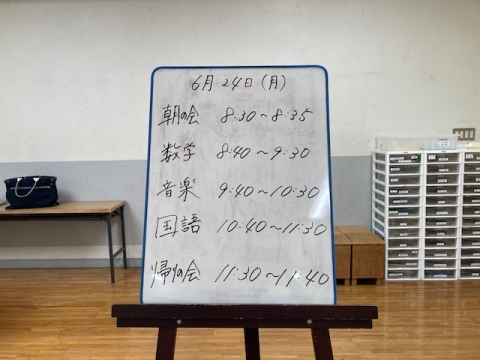 6月24日(月)
朝の会 8:30〜8:35
数学 8:40〜9:30
音楽 9:40〜10:30
国語 10:40〜11:30
帰りの会 11:30〜11:40